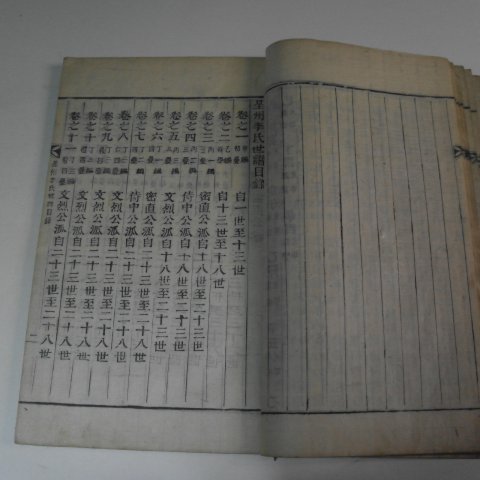 星州李氏世譜目錄
卷之一 自一世至十三世
卷之二 自十三世至十八世
卷之三 密直公派自十八世至二十三世
卷之四 侍中公派自十八世至二十三世
卷之五 文烈公派自十八世至二十三世
卷之六 密直公派自二十三世至二十八世
卷之七 侍中公派自二十三世至二十八世
卷之八 文烈公派自二十三世至二十八世
卷之九 文烈公派自二十三世至二十八世
卷之十 文烈公派自二十三世至二十八世
卷之十一 文烈公派自二十三世至二十八世
星州李氏世譜目錄